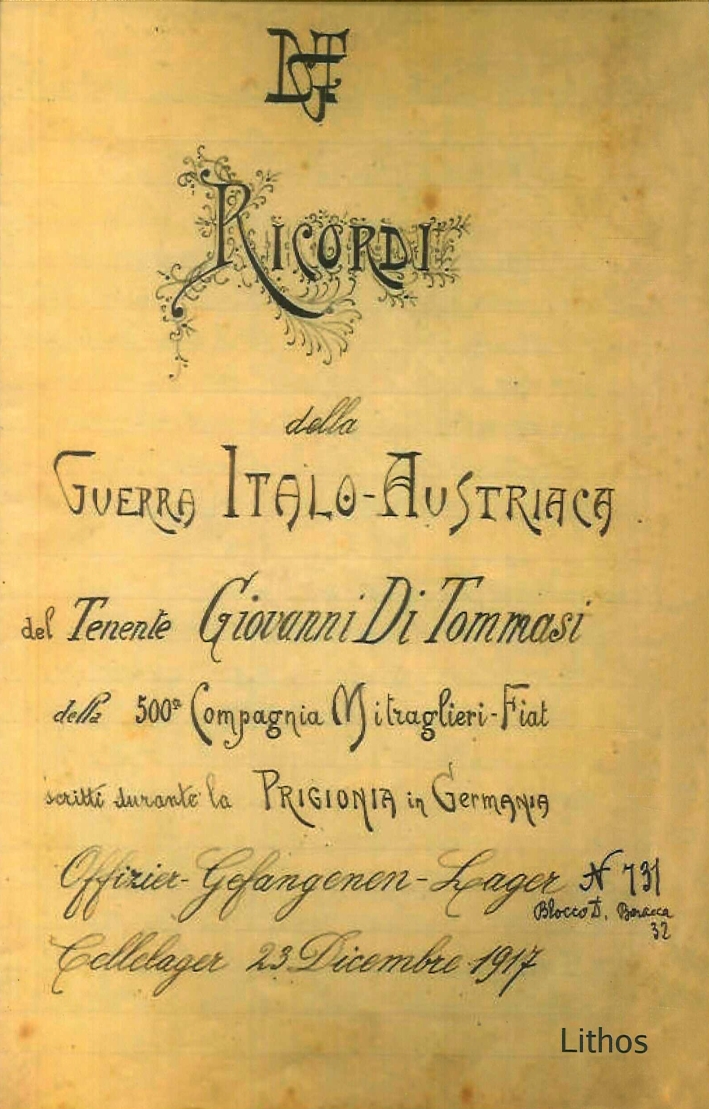 DGT
RICORDI
della
GUERRA ITALO-AUSTRIACA
del Tenente Giovanni Di Tommasi
della 500ª Compagnia Mitraglieri-Fiat
scritti durante la PRIGIONIA in GERMANIA
Offizier-Gefangenen-Lager N 731
Blocco D, Baracca
32
Cellelager 23 Dicembre 1917
Lithos